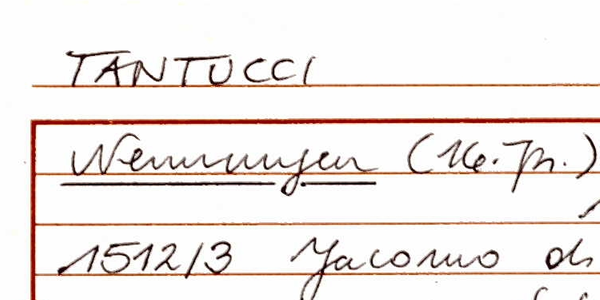 TANTUCCI
Nennungen (16. Jh.)
1512/3 Jacomo di